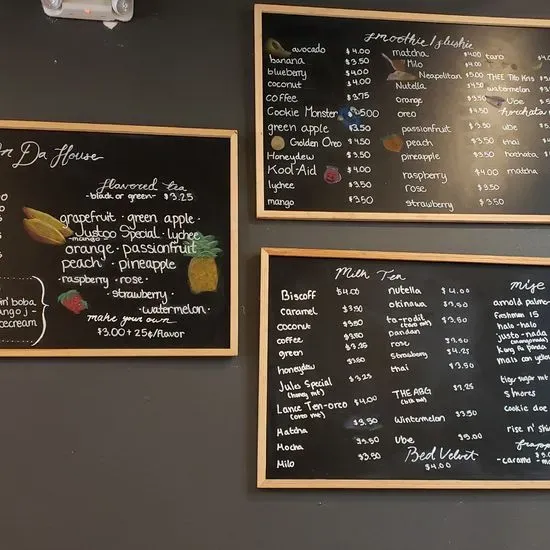 Da House
Flavored tea
-black or green- $3.25
grapefruit · green apple ·
Justoo Special · lychee
-mango-
orange · passionfruit
peach · pineapple
raspberry · rose ·
· strawberry ·
· watermelon ·
make your own
$3.00 + 25¢/flavor
boba,
icecream
smoothie/slushie
avocado $4.00
banana $3.50
blueberry $4.00
coconut $4.00
coffee $3.75
Cookie Monster $5.00
green apple $3.50
Golden Oreo $4.50
Honeydew $3.50
Kool-Aid $4.00
lychee $3.50
mango $3.50
matcha $4.00
Milo $4.00
Neapolitan $5.00
Nutella $4.50
orange $3.50
oreo $4.50
passionfruit $3.50
peach $3.50
pineapple $3.50
raspberry $4.00
rose $3.50
strawberry $3.50
taro
THEE
watermelon
Ube
horchata
ube
thai
horchata
matcha
Milk Tea
Biscoff $4.00
caramel $3.50
coconut $3.50
coffee $3.50
green $3.25
honeydew $3.50
Jules Special $3.25
(honey mt)
Lance Ten-oreo $4.00
(oreo mt)
Matcha $3.50
Mocha $3.50
Milo $3.50
nutella $4.00
okinawa $3.50
ta-rodil $3.50
(taro mt)
pandan
rose $3.50
strawberry $4.25
thai $3.50
THE ABG $3.25
Wintermelon $3.50
Ube $5.00
Red Velvet
$4.00
arnold palmer
freshman 15
halo-halo
justo-nada
Kung fu panda
mais con yelo
tiger sugar mt
s'mores
cookie doe
rise n' shine